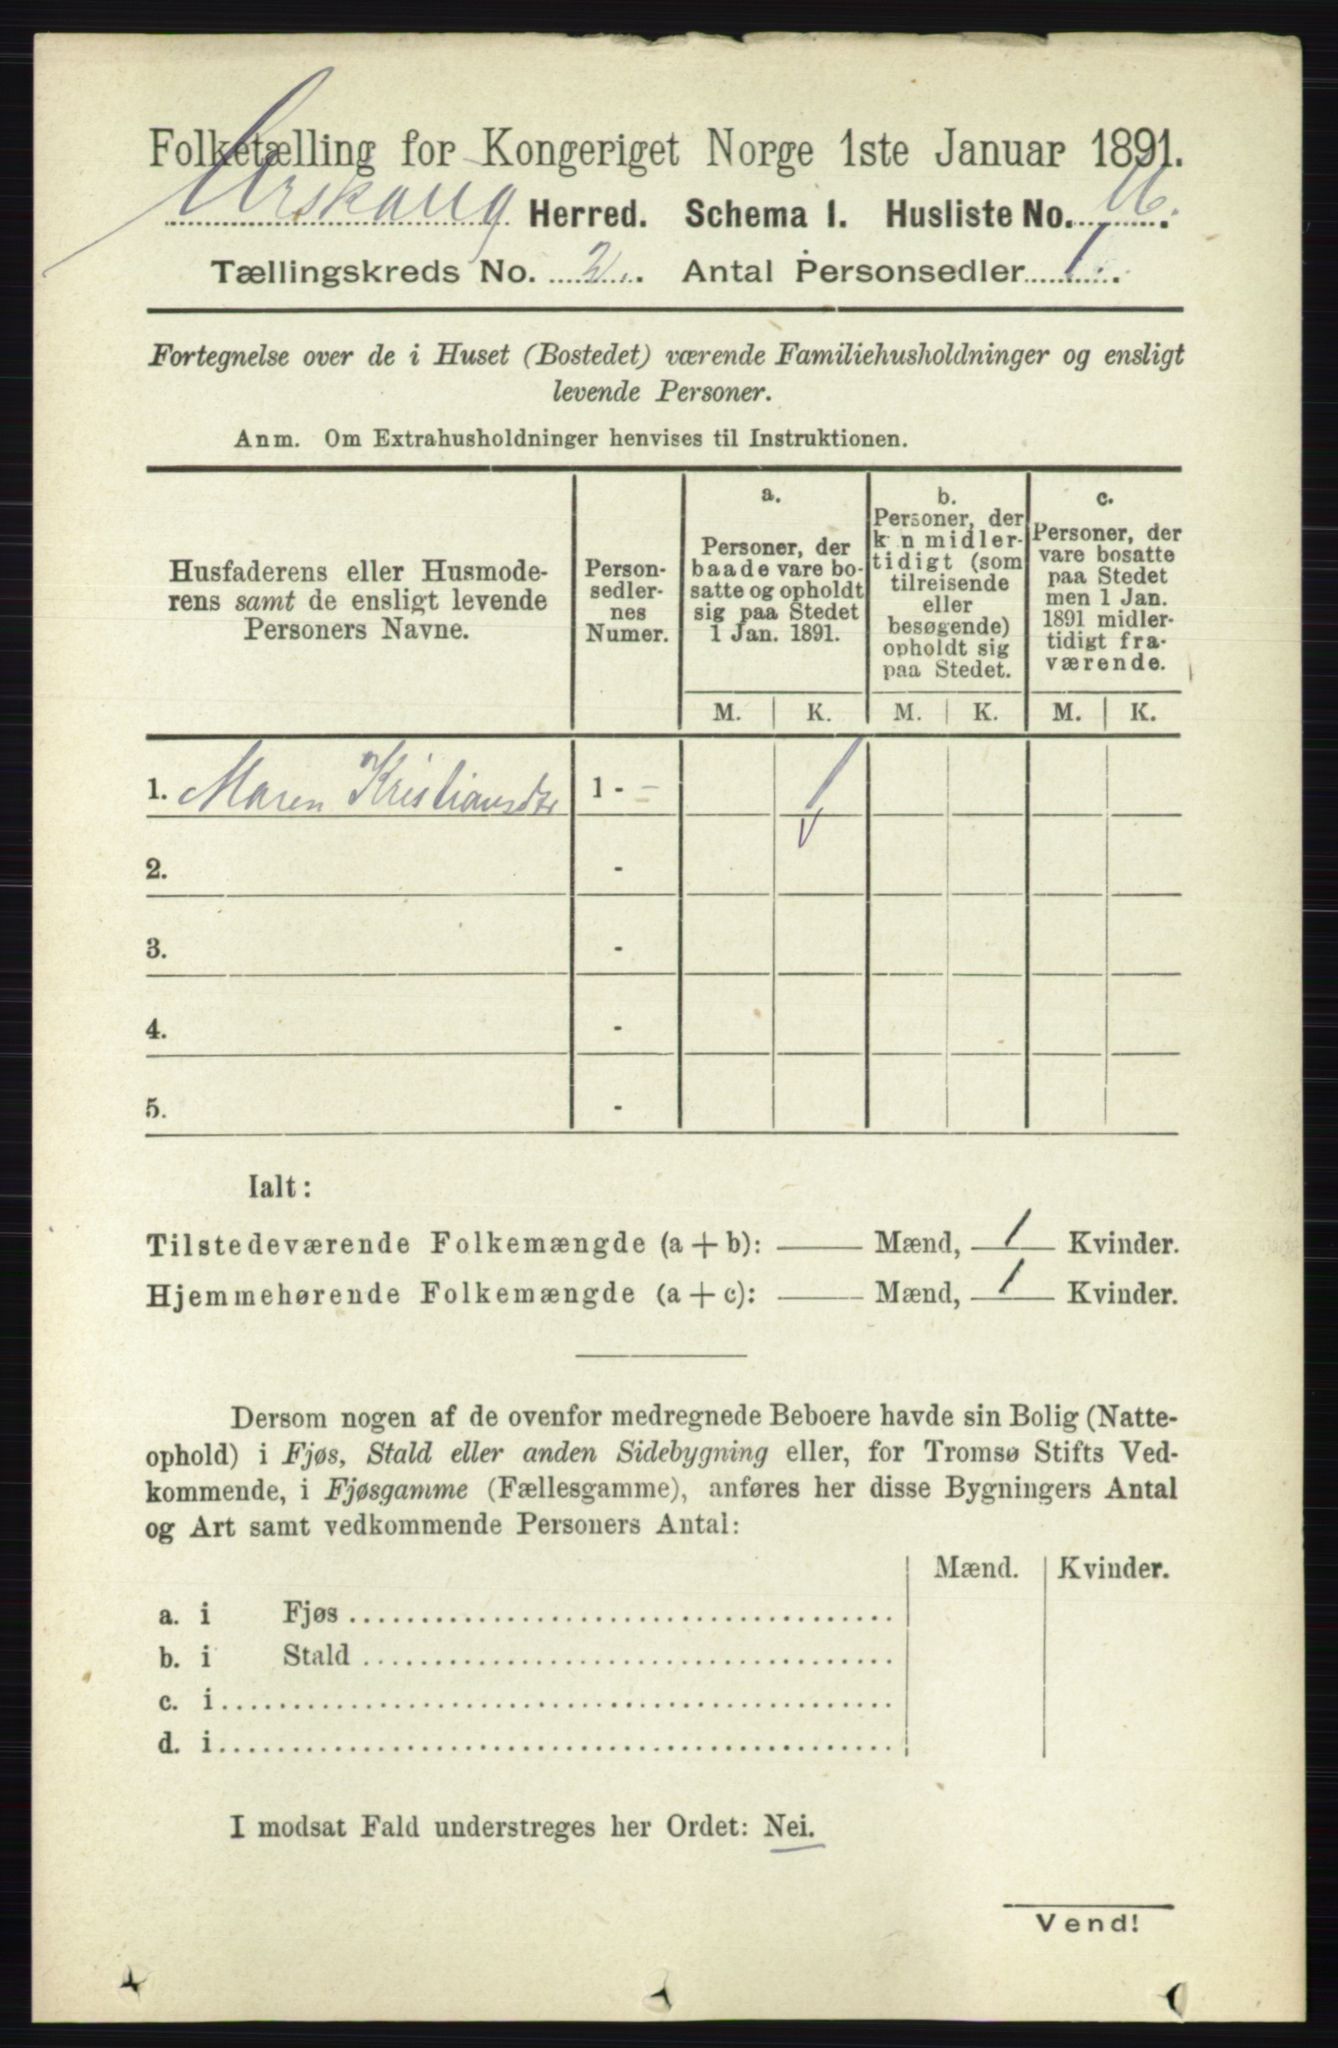 Folketælling for Kongeriget Norge 1ste Januar 1891.
Urskoug Herred. Schema 1. Husliste No. 16.
Tællingskreds No. 2. Antal Personsedler 1.
Fortegnelse over de i Huset (Bostedet) værende Familiehusholdninger og ensligt
levende Personer.
Anm. Om Extrahusholdninger henvises til Instruktionen.
Husfaderens eller Husmode-
rens samt de ensligt levende
Personers Navne.
Person-
sedler-
nes
Numer.
a.
Personer, der
baade vare bo-
satte og opholdt
sig paa Stedet
1 Jan. 1891.
b.
Personer, der
k n midler-
tidigt (som
tilreisende
eller
besøgende)
opholdt sig
paa Stedet.
c.
Personer, der
vare bosatte
paa Stedet
men 1 Jan.
1891 midler-
tidigt fra-
værende.
M. K. M. K. M. K.
1. Maren Kristiansdtr 1 - - 1
2. -
3. -
4. -
5. -
Ialt:
Tilstedeværende Folkemængde (a + b): Mænd, 1 Kvinder.
Hjemmehørende Folkemængde (a + c): Mænd, 1 Kvinder.
Dersom nogen af de ovenfor medregnede Beboere havde sin Bolig (Natte-
ophold) i Fjøs, Stald eller anden Sidebygning eller, for Tromsø Stifts Ved-
kommende, i Fjøsgamme (Fællesgamme), anføres her disse Bygningers Antal
og Art samt vedkommende Personers Antal:
Mænd. Kvinder.
a. i Fjøs
b. i Stald
c. i
d. i
I modsat Fald understreges her Ordet: Nei.
Vend!